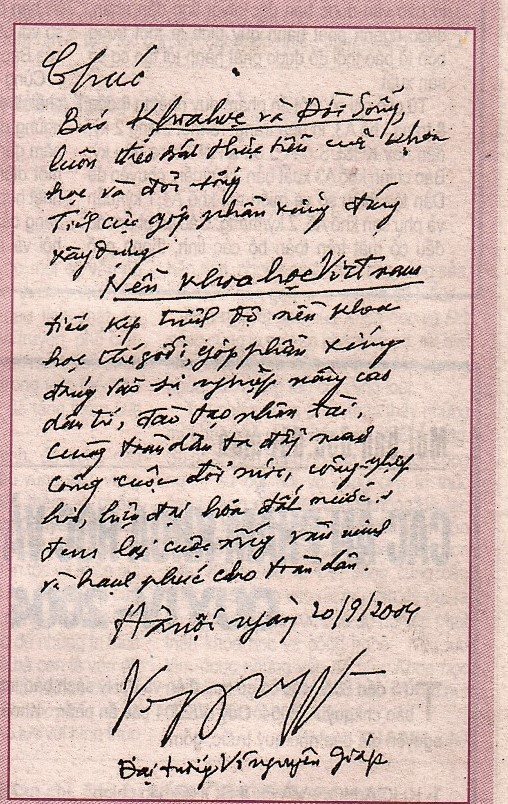 Chúc
Báo Khoa học và Đời Sống,
luôn theo sát thực tiễn của khoa
học và đời sống
Tích cực góp phần xứng đáng
xây dựng
Nền khoa học Việt nam
tiến kịp trình độ nền khoa
học thế giới, góp phần xứng
đáng vào sự nghiệp nâng cao
dân trí, đào tạo nhân tài,
cùng toàn dân ta đẩy mạnh
công cuộc đổi mới, công nghiệp
hóa, hiện đại hóa đất nước,
đem lại cuộc sống văn minh
và hạnh phúc cho toàn dân.
Hà nội ngày 20/9/2004
Đại tướng Võ nguyên Giáp